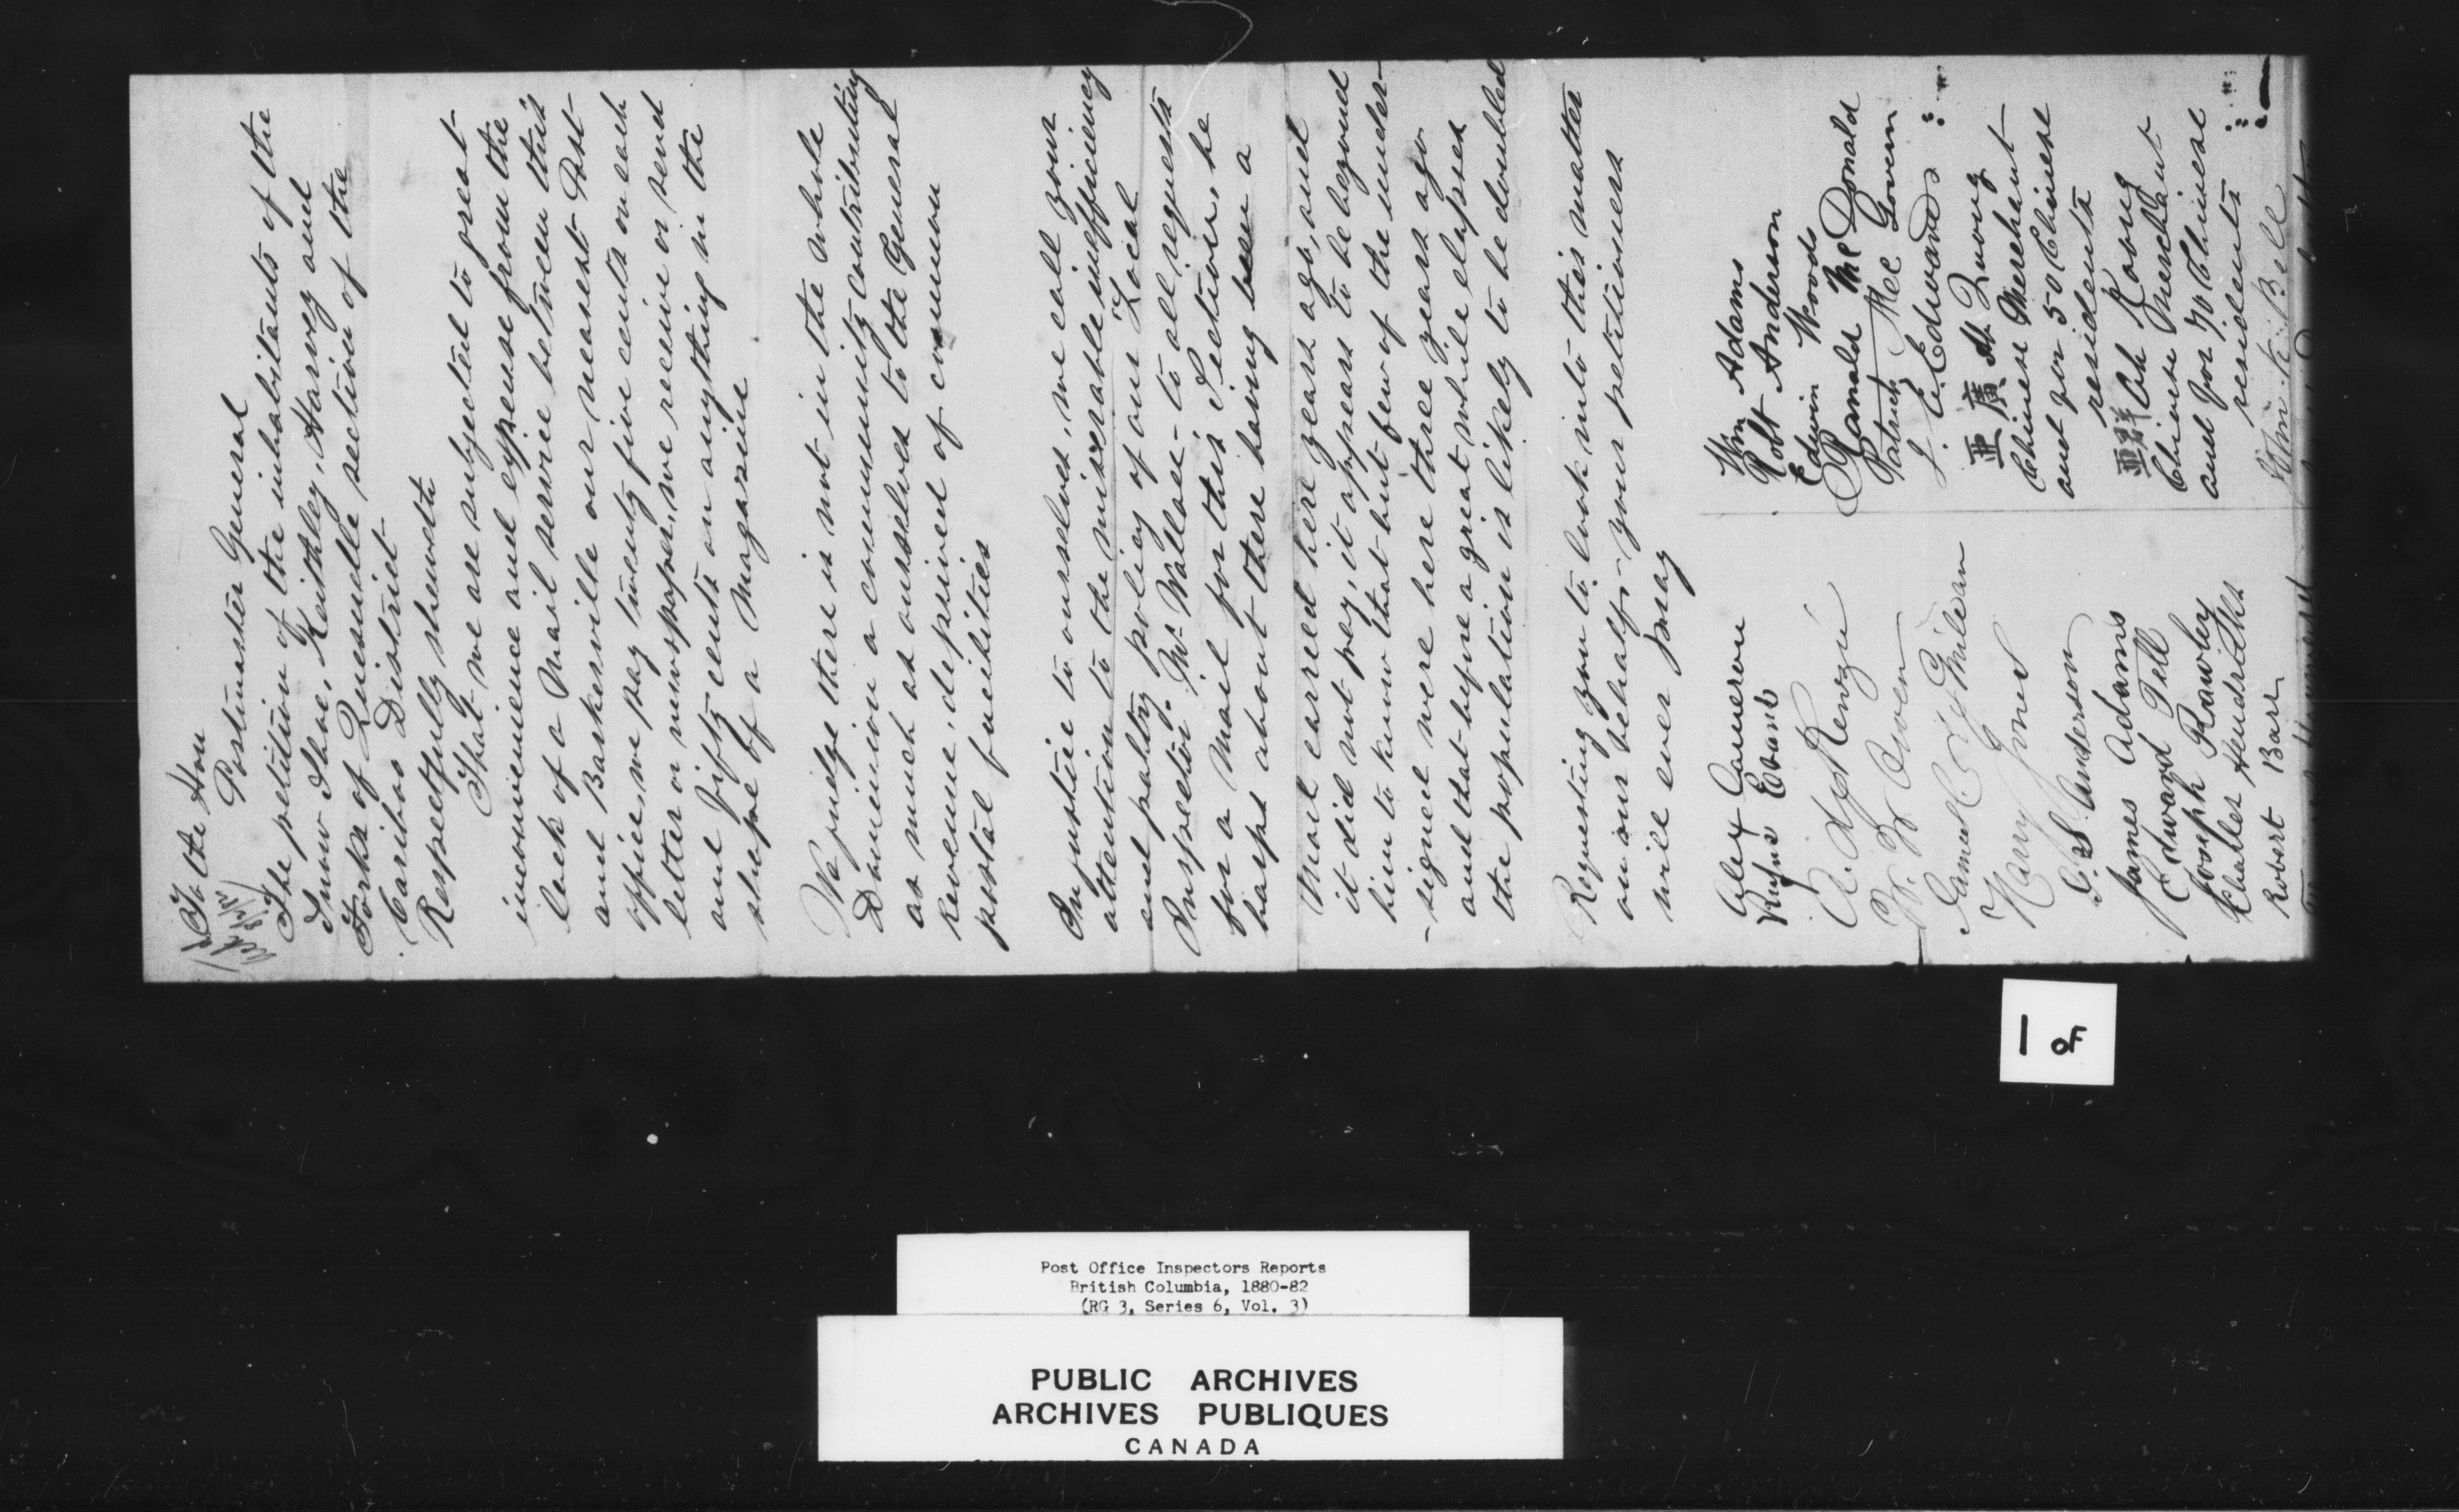 To the Hon
Postmaster General
The petition of the inhabitants of the
Snow Shoe, Keithley, Harvey and
Forks of Quesnelle section of the
Cariboo District
Respectfully sheweth
That we are subjected to great
inconvenience and expense from the
lack of a Mail service between this
and Barkerville our nearest Post
office, we pay twenty five cents on each
letter or newspaper, we receive or send
and fifty cents on anything in the
shape of a Magazine
We judge there is not in the whole
Dominion a community contributing
as much as ourselves to the General
Revenue, deprived of common
postal facilities
In justice to ourselves, we call your
attention to the miserable inefficiency
and paltry policy of our Local
Inspector. Mr Wallace - to all requests
for a Mail for this Section, he
harps about there having been a
Mail carried here years ago, and
it did not pay, it appears to be beyond
him to know that but few of the under-
-signed were here three years ago
and that before a great while elapses
the population is likely to be doubled
Requesting you to look into this matter
on our behalf - your petitioners
will ever pray
Alex Cameron
Rufus Evans
A. McKenzie
W. W. Owen
Harry Jones
G. S. Anderson
James Adams
Edward Tell
Joseph Rawley
Charles Hendricks
Robert Barr
Wm Adams
Robt Anderson
Edwin Woods
Ranald McDonald
Patrick McGovern
J. E. Edwards
亜廣 Ah Quong
Chinese Merchant
and for 50 Chinese
residents
亜祥 Ah Kong
Chinese Merchant
and for 70 Chinese
residents
Wm. K. Bell
1 OF
Post Office Inspectors Reports
British Columbia, 1880-82
(RG 3, Series 6, Vol. 3)
PUBLIC ARCHIVES
ARCHIVES PUBLIQUES
CANADA